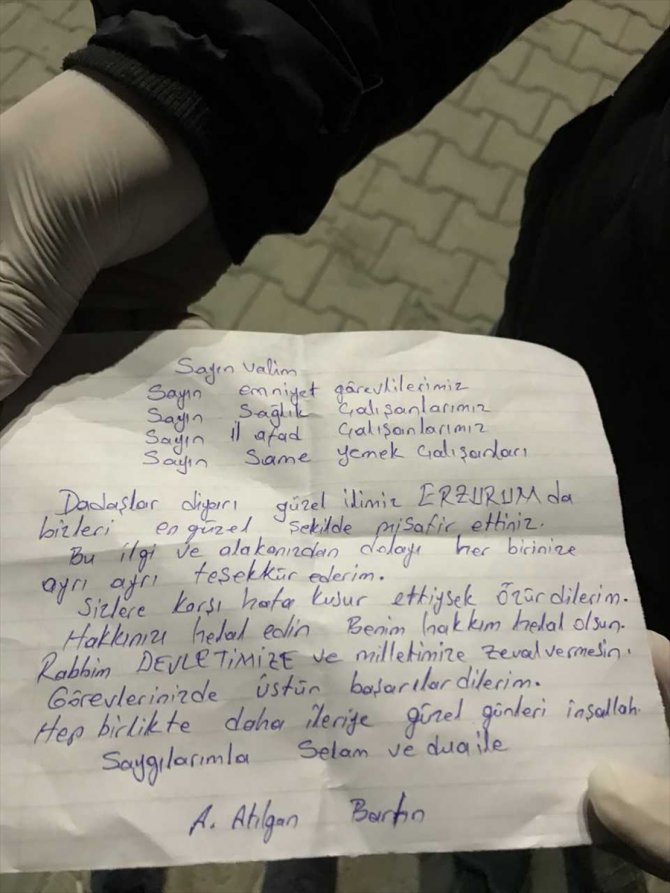 Sayın valim
Sayın emniyet görevlilerimiz
Sayın Sağlık Çalışanlarımız
Sayın il afad Çalışanlarımız
Sayın Same yemek Çalışanları
Dadaşlar diyarı güzel ilimiz ERZURUM da
bizleri en güzel şekilde misafir ettiniz.
Bu ilgi ve alakanızdan dolayı her birinize
ayrı ayrı teşekkür ederim.
Sizlere karşı hata kusur ettiysek Özür dilerim.
Hakkınızı helal edin Benim hakkım helal olsun.
Rabbim DEVLETİMİZE ve milletimize zeval vermesin.
Görevlerinizde üstün başarılar dilerim.
Hep birlikte daha ileriye güzel günleri inşallah.
Saygılarımla Selam ve dua ile
A. Atılgan Bartın